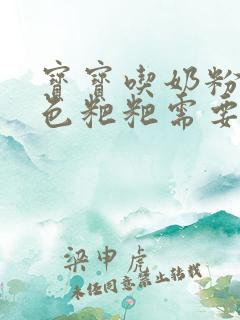 寶寶喫奶粉
色粑粑需要
梁申虎
未经同意禁止转载